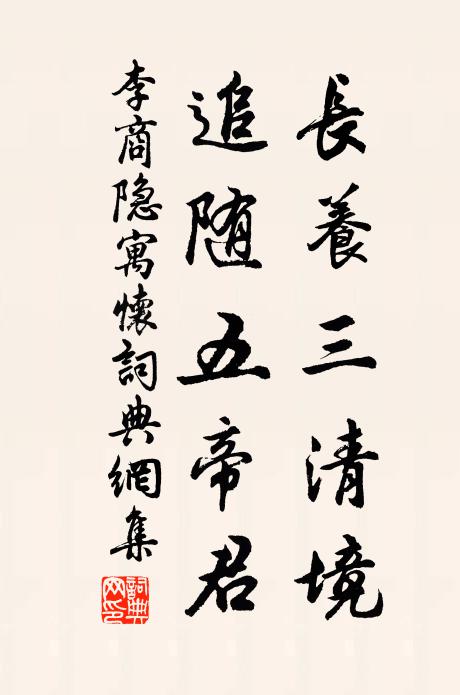 長養三清境
追随五帝君
李商隐寓懷詞典網集
詞典
网印